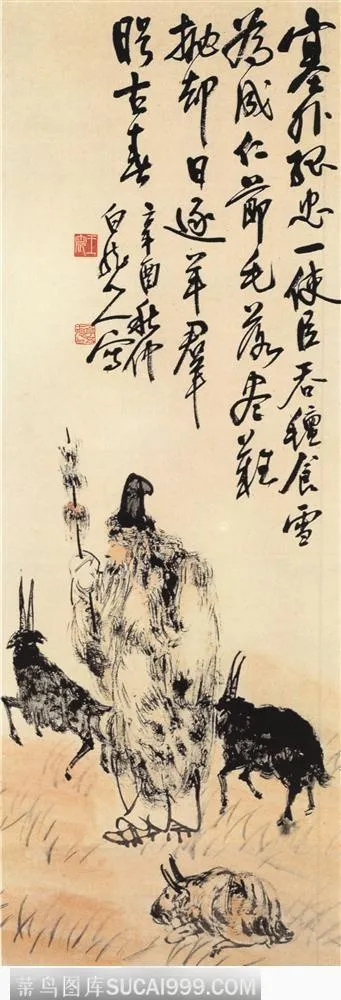 塞外孤忠一使臣吞毡食雪
为成仁节毛落尽难
抛却日逐羊群
盼古春
辛酉秋仲
白龙山人写
菜鸟图库SUCAI999.COM